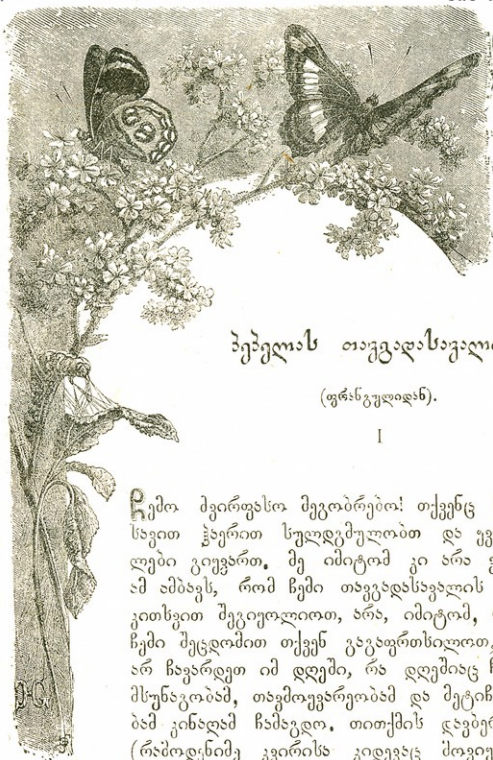 პეპელას თავგადასავალი
(ფრანგულიდან).
I
ჩემო ძვირფასო მეგობრებო! თქვენც
სავით ჰაერით სულდგმულობთ და ყვ
ლები გიყვართ. მე იმიტომ კი არა
ამ ამბავს, რომ ჩემი თავგადასავალის
კითხვით შეგიყოლიოთ, არა, იმიტომ,
ჩემი შეცდომით თქვენ გაგაფრთხილოთ,
არ ჩავარდეთ იმ დღეში, რა დღეშიაც
მსუნაგობამ, თავმოყვარეობამ და მეტიჩ
ბამ კინაღამ ჩამაგდო. თითქმის დავბერ
(რამოდენიმე კვირისა კიდევაც მოვიყ